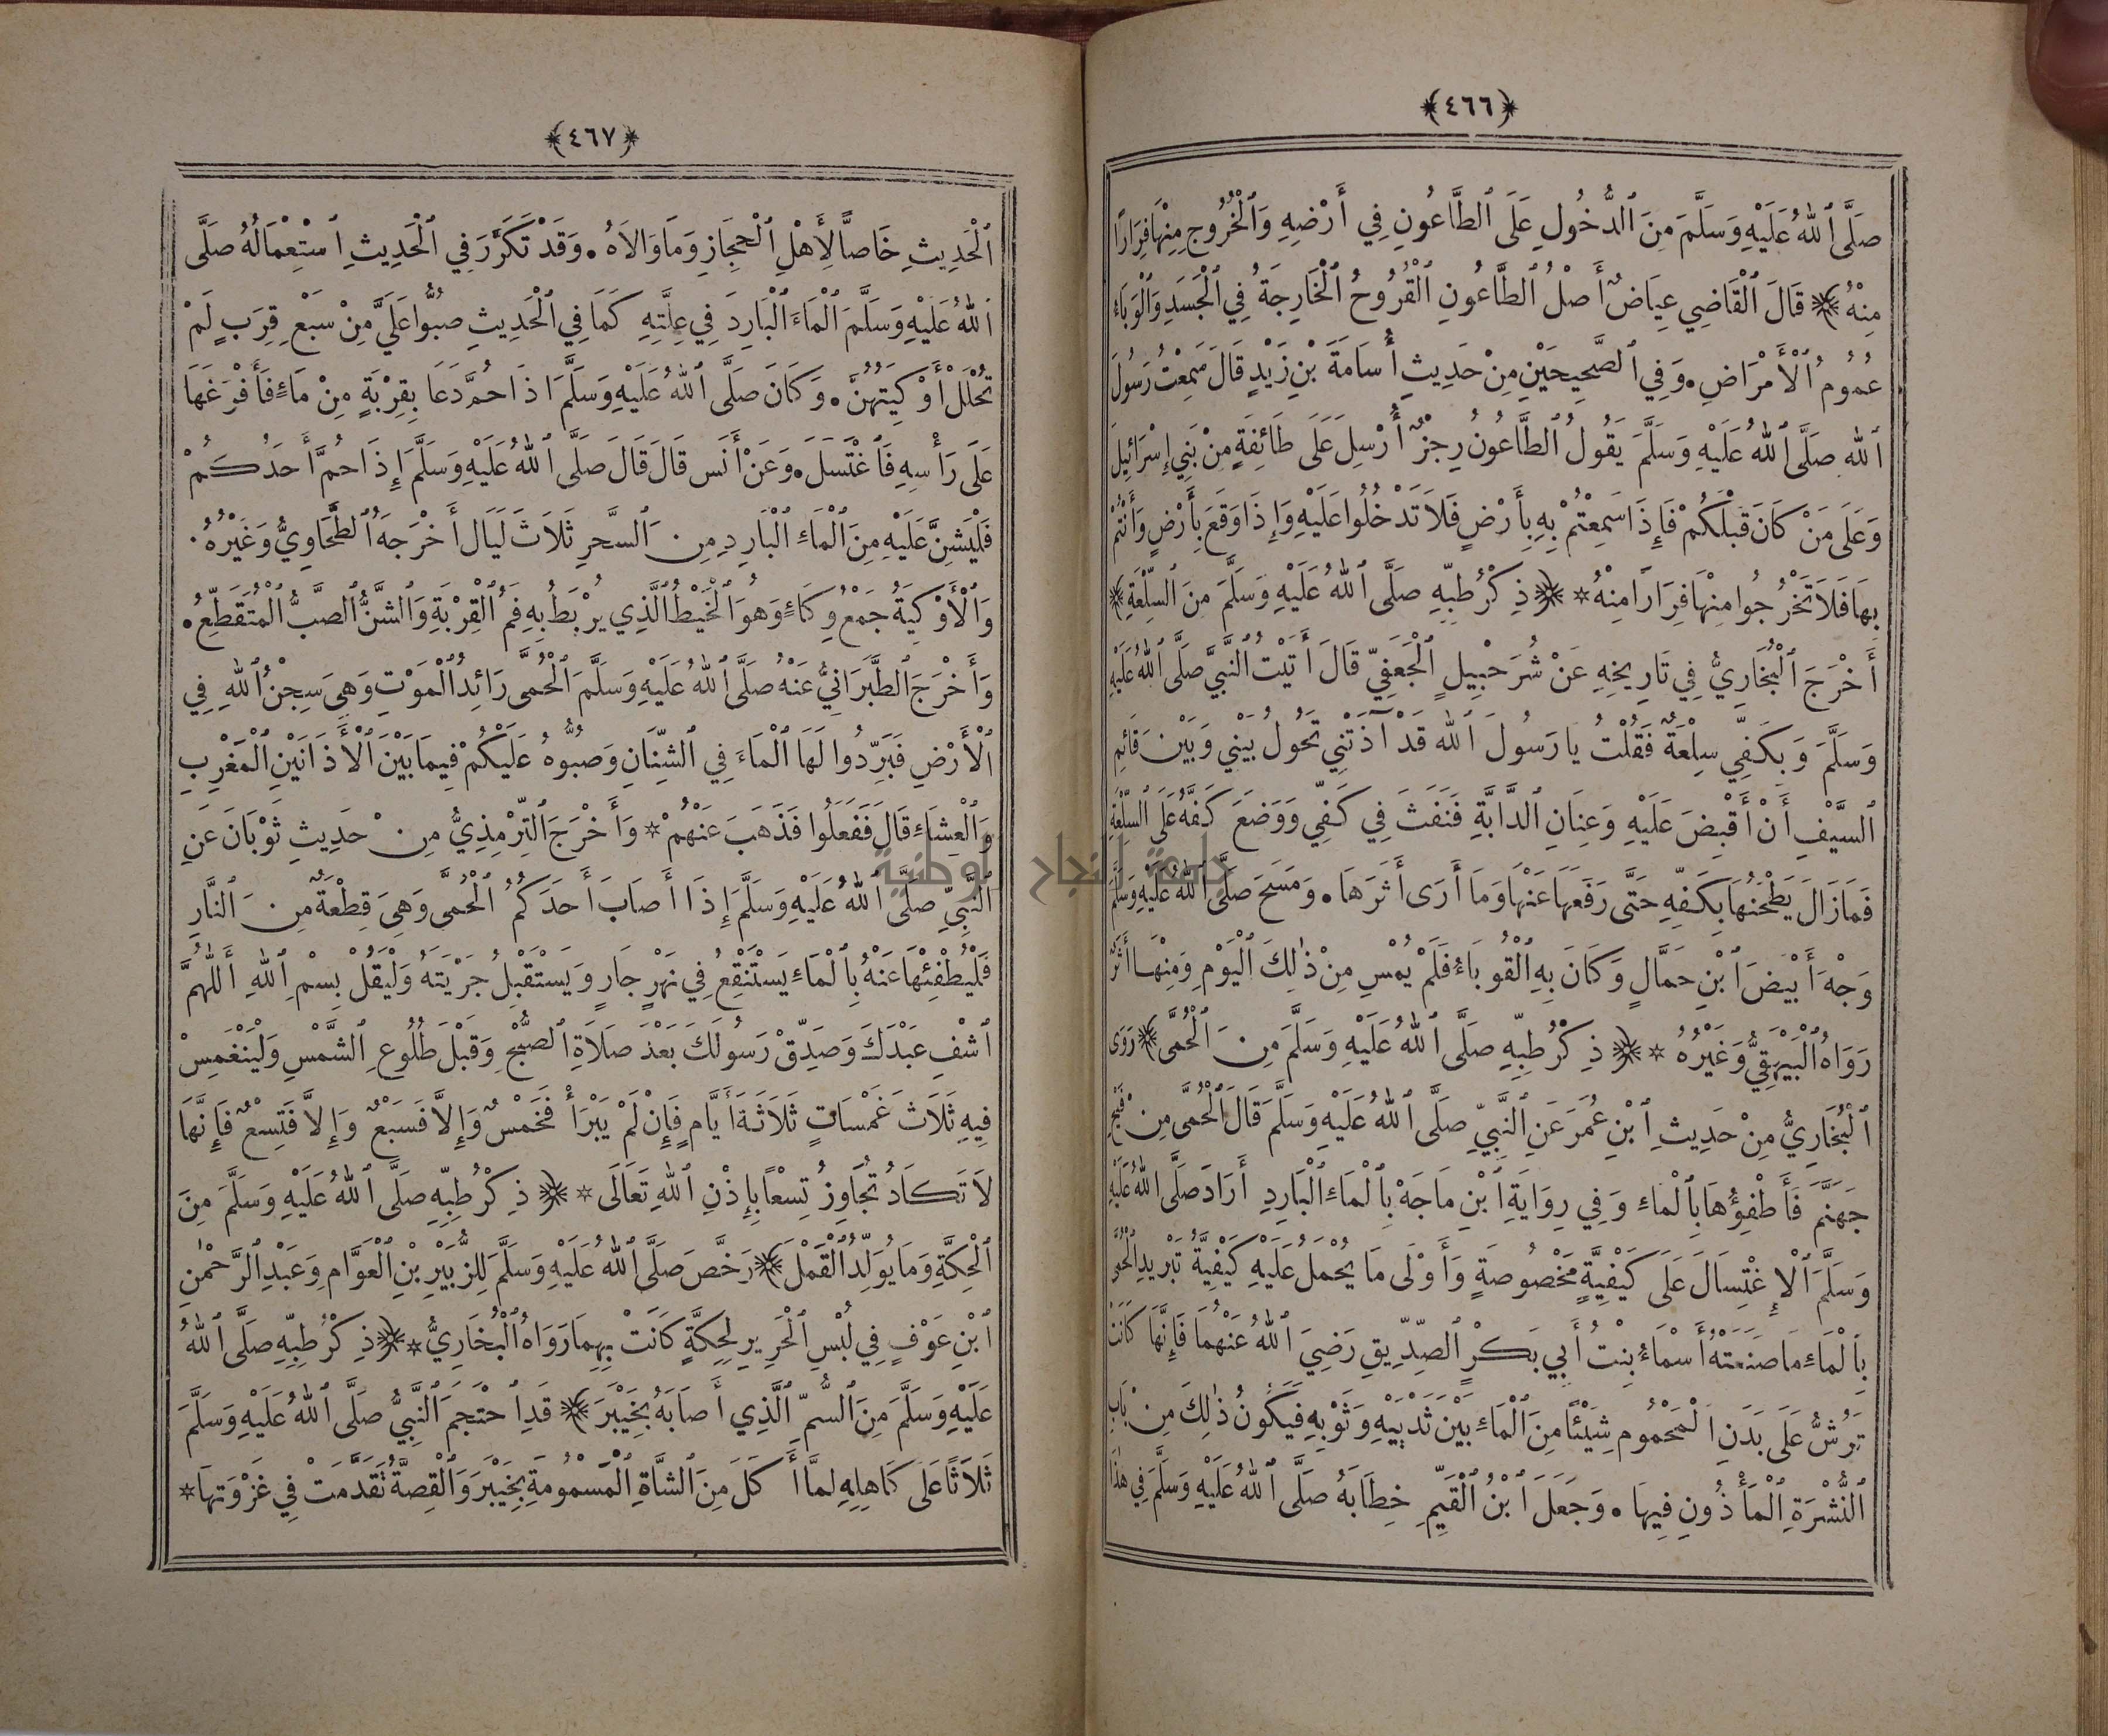 ﴿٤٦٦﴾
صَلَّى ٱللهُ عَلَيْهِ وَسَلَّمَ مِنَ ٱلدُّخُولِ عَلَى ٱلطَّاعُونِ فِي أَرْضِهِ وَٱلْخُرُوجِ مِنْهَا فِرَارًا
مِنْهُ ﴾ قَالَ ٱلْقَاضِي عِيَاضٌ أَصْلُ ٱلطَّاعُونِ ٱلْقُرُوحُ ٱلْخَارِجَةُ فِي ٱلْجَسَدِ وَٱلْوَبَاءُ
عُمُومُ ٱلْأَمْرَاضِ . وَفِي ٱلصَّحِيحَيْنِ مِنْ حَدِيثِ أُسَامَةَ بْنِ زَيْدٍ قَالَ سَمِعْتُ رَسُولَ
ٱللهِ صَلَّى ٱللهُ عَلَيْهِ وَسَلَّمَ يَقُولُ ٱلطَّاعُونُ رِجْزٌ أُرْسِلَ عَلَى طَائِفَةٍ مِنْ بَنِي إِسْرَائِيلَ
وَعَلَى مَنْ كَانَ قَبْلَكُمْ فَإِذَا سَمِعْتُمْ بِهِ بِأَرْضٍ فَلَا تَدْخُلُوا عَلَيْهِ وَإِذَا وَقَعَ بِأَرْضٍ وَأَنْتُمْ
بِهَا فَلَا تَخْرُجُوا مِنْهَا فِرَارًا مِنْهُ * ﴿ ذِكْرُ طِبِّهِ صَلَّى ٱللهُ عَلَيْهِ وَسَلَّمَ مِنَ ٱلسِّلْعَةِ ﴾
أَخْرَجَ ٱلْبُخَارِيُّ فِي تَارِيخِهِ عَنْ شُرَحْبِيلٍ ٱلْجَعَفِيِّ قَالَ أَتَيْتُ ٱلنَّبِيَّ صَلَّى ٱللهُ عَلَيْهِ
وَسَلَّمَ وَبِكَفِّي سِلْعَةٌ فَقُلْتُ يَا رَسُولَ ٱللهِ قَدْ آذَتْنِي تَحُولُ بَيْنِي وَبَيْنَ قَائِمِ
ٱلسَّيْفِ أَنْ أَقْبِضَ عَلَيْهِ وَعِنَانِ ٱلدَّابَّةِ فَنَفَثَ فِي كَفِّي وَوَضَعَ كَفَّهُ عَلَى ٱلسِّلْعَةِ
فَمَا زَالَ يَطْحَنُهَا بِكَفِّهِ حَتَّى رَفَعَهَا عَنْهَا وَمَا أَرَى أَثَرَهَا . وَمَسَحَ صَلَّى ٱللهُ عَلَيْهِ وَسَلَّمَ
وَجْهَ أَبْيَضَ ٱبْنِ حَمَّالٍ وَكَانَ بِهِ ٱلْقُوبَاءُ فَلَمْ يُمْسِ مِنْ ذٰلِكَ ٱلْيَوْمِ وَمِنْهَا أَثَرٌ
رَوَاهُ ٱلْبَيْهَقِيُّ وَغَيْرُهُ * ﴿ ذِكْرُ طِبِّهِ صَلَّى ٱللهُ عَلَيْهِ وَسَلَّمَ مِنَ ٱلْحُمَّى ﴾ رَوَى
ٱلْبُخَارِيُّ مِنْ حَدِيثِ ٱبْنِ عُمَرَ عَنِ ٱلنَّبِيِّ صَلَّى ٱللهُ عَلَيْهِ وَسَلَّمَ قَالَ ٱلْحُمَّى مِنْ فَيْحِ
جَهَنَّمَ فَأَطْفِؤُهَا بِٱلْمَاءِ وَفِي رِوَايَةِ ٱبْنِ مَاجَهْ بِٱلْمَاءِ ٱلْبَارِدِ أَرَادَ صَلَّى ٱللهُ عَلَيْهِ
وَسَلَّمَ ٱلْاِغْتِسَالَ عَلَى كَيْفِيَّةٍ مَخْصُوصَةٍ وَأَوْلَى مَا يُحْمَلُ عَلَيْهِ كَيْفِيَّةُ تَبْرِيدِ ٱلْحُمَّى
بِٱلْمَاءِ مَا صَنَعَتْهُ أَسْمَاءُ بِنْتُ أَبِي بَكْرٍ ٱلصِّدِّيقِ رَضِيَ ٱللهُ عَنْهُمَا فَإِنَّهَا كَانَتْ
تَرُشُّ عَلَى بَدَنِ ٱلْمَحْمُومِ شَيْئًا مِنَ ٱلْمَاءِ بَيْنَ ثَدْيَيْهِ وَثَوْبِهِ فَيَكُونُ ذٰلِكَ مِنْ بَابِ
ٱلنُّشْرَةِ ٱلْمَأْذُونِ فِيهَا . وَجَعَلَ ٱبْنُ ٱلْقَيِّمِ خِطَابَهُ صَلَّى ٱللهُ عَلَيْهِ وَسَلَّمَ فِي هٰذَا
﴿٤٦٧﴾
ٱلْحَدِيثِ خَاصًّا لِأَهْلِ ٱلْحِجَازِ وَمَا وَالَاهُ . وَقَدْ تَكَرَّرَ فِي ٱلْحَدِيثِ ٱسْتِعْمَالُهُ صَلَّى
ٱللهُ عَلَيْهِ وَسَلَّمَ ٱلْمَاءَ ٱلْبَارِدَ فِي عِلَّتِهِ كَمَا فِي ٱلْحَدِيثِ صُبُّوا عَلَيَّ مِنْ سَبْعِ قِرَبٍ لَمْ
تُحْلَلْ أَوْكِيَتُهُنَّ . وَكَانَ صَلَّى ٱللهُ عَلَيْهِ وَسَلَّمَ إِذَا حُمَّ دَعَا بِقِرْبَةٍ مِنْ مَاءٍ فَأَفْرَغَهَا
عَلَى رَأْسِهِ فَٱغْتَسَلَ . وَعَنْ أَنَسٍ قَالَ قَالَ صَلَّى ٱللهُ عَلَيْهِ وَسَلَّمَ إِذَا حُمَّ أَحَدُكُمْ
فَلْيَشِنَّ عَلَيْهِ مِنَ ٱلْمَاءِ ٱلْبَارِدِ مِنَ ٱلسَّحَرِ ثَلَاثَ لَيَالٍ أَخْرَجَهُ ٱلطَّحَاوِيُّ وَغَيْرُهُ .
وَٱلْأَوْكِيَةُ جَمْعُ وِكَاءٍ وَهُوَ ٱلْخَيْطُ ٱلَّذِي يُرْبَطُ بِهِ فَمُ ٱلْقِرْبَةِ وَٱلشَّنُّ ٱلصَّبُّ ٱلْمُتَقَطِّعُ .
وَأَخْرَجَ ٱلطَّبَرَانِيُّ عَنْهُ صَلَّى ٱللهُ عَلَيْهِ وَسَلَّمَ ٱلْحُمَّى رَائِدُ ٱلْمَوْتِ وَهِيَ سِجْنُ ٱللهِ فِي
ٱلْأَرْضِ فَبَرِّدُوا لَهَا ٱلْمَاءَ فِي ٱلشِّنَانِ وَصُبُّوهُ عَلَيْكُمْ فِيمَا بَيْنَ ٱلْأَذَانَيْنِ ٱلْمَغْرِبِ
وَٱلْعِشَاءِ قَالَ فَفَعَلُوا فَذَهَبَ عَنْهُمْ * وَأَخْرَجَ ٱلتِّرْمِذِيُّ مِنْ حَدِيثِ ثَوْبَانَ عَنِ
ٱلنَّبِيِّ صَلَّى ٱللهُ عَلَيْهِ وَسَلَّمَ إِذَا أَصَابَ أَحَدَكُمُ ٱلْحُمَّى وَهِيَ قِطْعَةٌ مِنَ ٱلنَّارِ
فَلْيُطْفِئْهَا عَنْهُ بِٱلْمَاءِ يَسْتَنْقِعُ فِي نَهْرٍ جَارٍ وَيَسْتَقْبِلُ جَرْيَتَهُ وَلْيَقُلْ بِسْمِ ٱللهِ أَللّٰهُمَّ
ٱشْفِ عَبْدَكَ وَصَدِّقْ رَسُولَكَ بَعْدَ صَلَاةِ ٱلصُّبْحِ وَقَبْلَ طُلُوعِ ٱلشَّمْسِ وَلْيَنْغَمِسْ
فِيهِ ثَلَاثَ غَمْسَاتٍ ثَلَاثَةَ أَيَّامٍ فَإِنْ لَمْ يَبْرَأْ فَخَمْسٌ وَإِلَّا فَسَبْعٌ وَإِلَّا فَتِسْعٌ فَإِنَّهَا
لَا تَكَادُ تُجَاوِزُ تِسْعًا بِإِذْنِ ٱللهِ تَعَالَى * ﴿ ذِكْرُ طِبِّهِ صَلَّى ٱللهُ عَلَيْهِ وَسَلَّمَ مِنَ
ٱلْحِكَّةِ وَمَا يُوَلِّدُ ٱلْقَمْلَ ﴾ رَخَّصَ صَلَّى ٱللهُ عَلَيْهِ وَسَلَّمَ لِلزُّبَيْرِ بْنِ ٱلْعَوَّامِ وَعَبْدِ ٱلرَّحْمٰنِ
ٱبْنِ عَوْفٍ فِي لُبْسِ ٱلْحَرِيرِ لِحِكَّةٍ كَانَتْ بِهِمَا رَوَاهُ ٱلْبُخَارِيُّ * ﴿ ذِكْرُ طِبِّهِ صَلَّى ٱللهُ
عَلَيْهِ وَسَلَّمَ مِنَ ٱلسُّمِّ ٱلَّذِي أَصَابَهُ بِخَيْبَرَ ﴾ قَدِ ٱحْتَجَمَ ٱلنَّبِيُّ صَلَّى ٱللهُ عَلَيْهِ وَسَلَّمَ
ثَلَاثًا عَلَى كَاهِلِهِ لِمَا أَكَلَ مِنَ ٱلشَّاةِ ٱلْمَسْمُومَةِ بِخَيْبَرَ وَٱلْقِصَّةُ تَقَدَّمَتْ فِي غَزْوَتِهَا *
جامعة النجاح الوطنية